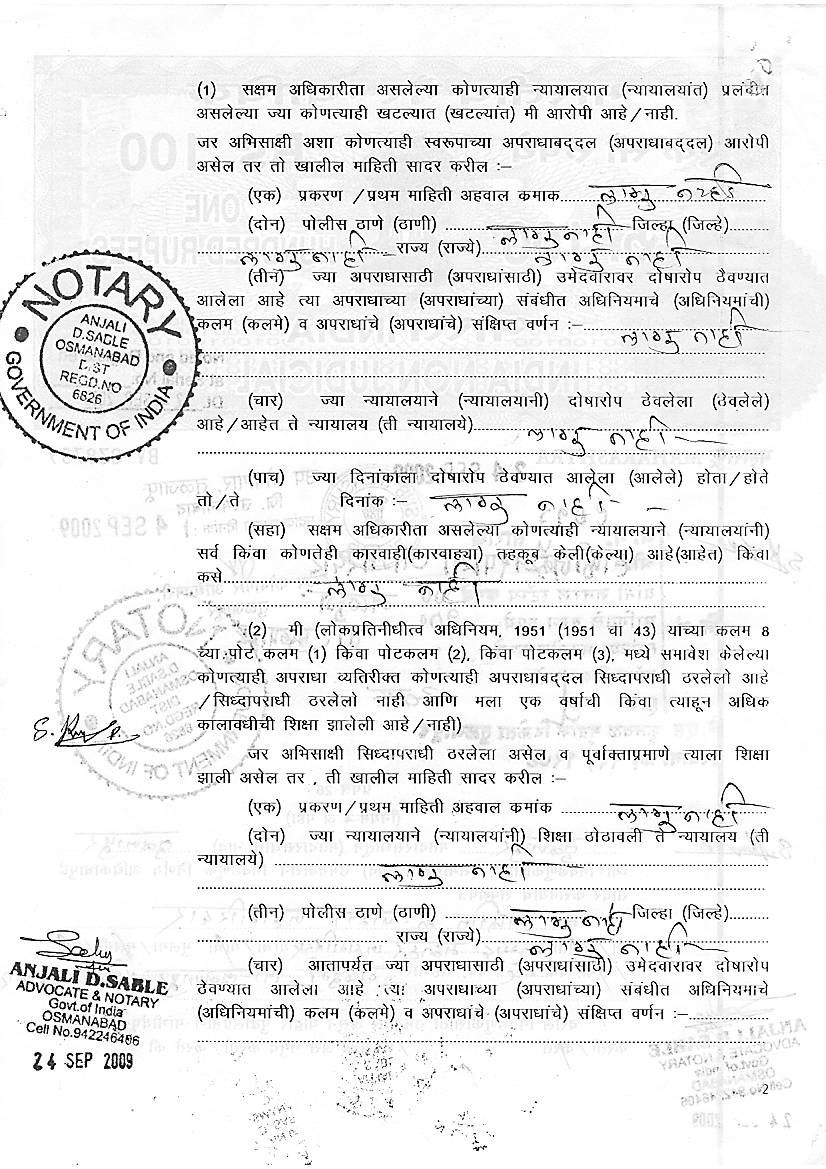 (1) सक्षम अधिकारीता असलेल्या कोणत्याही न्यायालयात (न्यायालयांत) प्रलंबीत
असलेल्या ज्या कोणत्याही खटल्यात (खटल्यांत) मी आरोपी आहे/नाही.
जर अभिसाक्षी अशा कोणत्याही स्वरूपाच्या अपराधाबद्दल (अपराधाबद्दल) आरोपी
असेल तर तो खालील माहिती सादर करील :–
(एक) प्रकरण /प्रथम माहिती अहवाल कमाक......लागु नाही
(दोन) पोलीस ठाणे (ठाणी) ......लागु नाही......जिल्हा (जिल्हे).......
......लागु नाही...... राज्य (राज्ये)......लागु नाही......
(तीन) ज्या अपराधासाठी (अपराधांसाठी) उमेदवारावर दोषारोप ठेवण्यात
आलेला आहे त्या अपराधाच्या (अपराधांच्या) संबंधीत अधिनियमाचे (अधिनियमांची)
कलम (कलमे) व अपराधांचे (अपराधांचे) संक्षिप्त वर्णन :–......लागु नाही
(चार) ज्या न्यायालयाने (न्यायालयानी) दोषारोप ठेवलेला (ठेवलेले)
आहे/आहेत ते न्यायालय (ती न्यायालये)......लागु नाही
(पाच) ज्या दिनांकाला दोषारोप ठेवण्यात आलेला (आलेले) होता/होते
तो/ते दिनांक :– लागु नाही
(सहा) सक्षम अधिकारीता असलेल्या कोणत्याही न्यायालयाने (न्यायालयांनी)
सर्व किंवा कोणतेही कारवाही(कारवाह्या) तहकूब केली(केल्या) आहे(आहेत) किंवा
कसे......लागु नाही......
(2) मी (लोकप्रतिनीधीत्व अधिनियम, 1951 (1951 चा 43) याच्या कलम 8
च्या पोट कलम (1) किंवा पोटकलम (2), किंवा पोटकलम (3), मध्ये समावेश केलेल्या
कोणत्याही अपराधा व्यतिरीक्त कोणत्याही अपराधाबद्दल सिध्दापराधी ठरलेलो आहे
/सिध्दापराधी ठरलेलो नाही आणि मला एक वर्षाची किंवा त्याहून अधिक
कालावधीची शिक्षा झालेली आहे/नाही)
जर अभिसाक्षी सिध्दापराधी ठरलेला असेल व पूर्वाक्ताप्रमाणे त्याला शिक्षा
झाली असेल तर , ती खालील माहिती सादर करील :–
(एक) प्रकरण/प्रथम माहिती अहवाल कमांक ......लागु नाही
(दोन) ज्या न्यायालयाने (न्यायालयांनी) शिक्षा ठोठावली ते न्यायालय (ती
न्यायालये) ......लागु नाही......
(तीन) पोलीस ठाणे (ठाणी) ......लागु नाही जिल्हा (जिल्हे).......
...... राज्य (राज्ये)......लागु नाही
(चार) आतापर्यत ज्या अपराधासाठी (अपराधांसाठी) उमेदवारावर दोषारोप
ठेवण्यात आलेला आहे त्या अपराधाच्या (अपराधांच्या) संबंधीत अधिनियमाचे
(अधिनियमांची) कलम (कलमे) व अपराधांचे (अपराधांचे) संक्षिप्त वर्णन :–......
NOTARY
GOVERNMENT OF INDIA
ANJALI
D.SABLE
OSMANABAD
DIST
REGD.NO
6826
ANJALI D.SABLE
ADVOCATE & NOTARY
Govt.of India
OSMANABAD
Cell No.942246486
24 SEP 2009
2